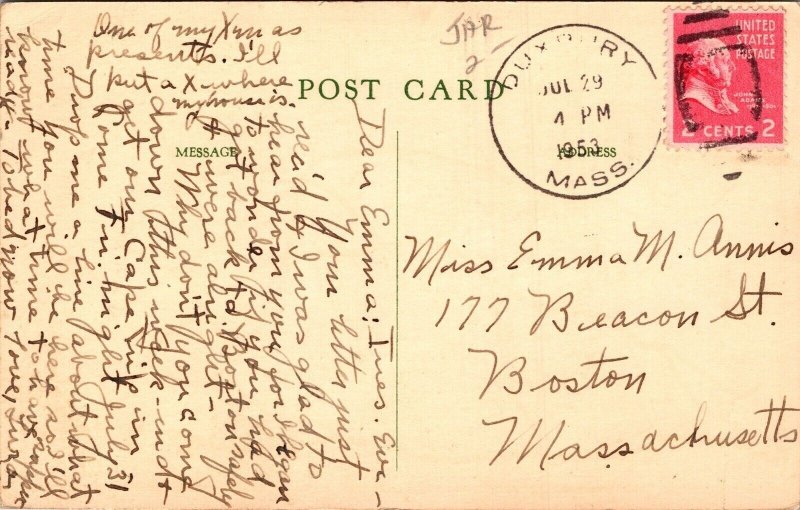 One of my Xmas
presents. I'll
put a X where
my house is.
POST CARD
JAR
2-
DUXBURY
JUL 29
4 PM
1953
MASS.
UNITED
STATES
POSTAGE
JOHN
ADAMS
2 CENTS 2
MESSAGE
ADDRESS
Tues. Eve-
Dear Emma:
Your letter just
rec'd & I was glad to
hear from you for I began
to wonder if you had
got back to Boston safely
& were alright-
Why don't you come
down this week-end &
get our Cape trip in
Come Fri. night July 31
Drop me a line about what
time you will be here so I'll
know what time to have supper
ready - To bed now Love,
Miss Emma M. Annis
177 Beacon St.
Boston
Massachusetts